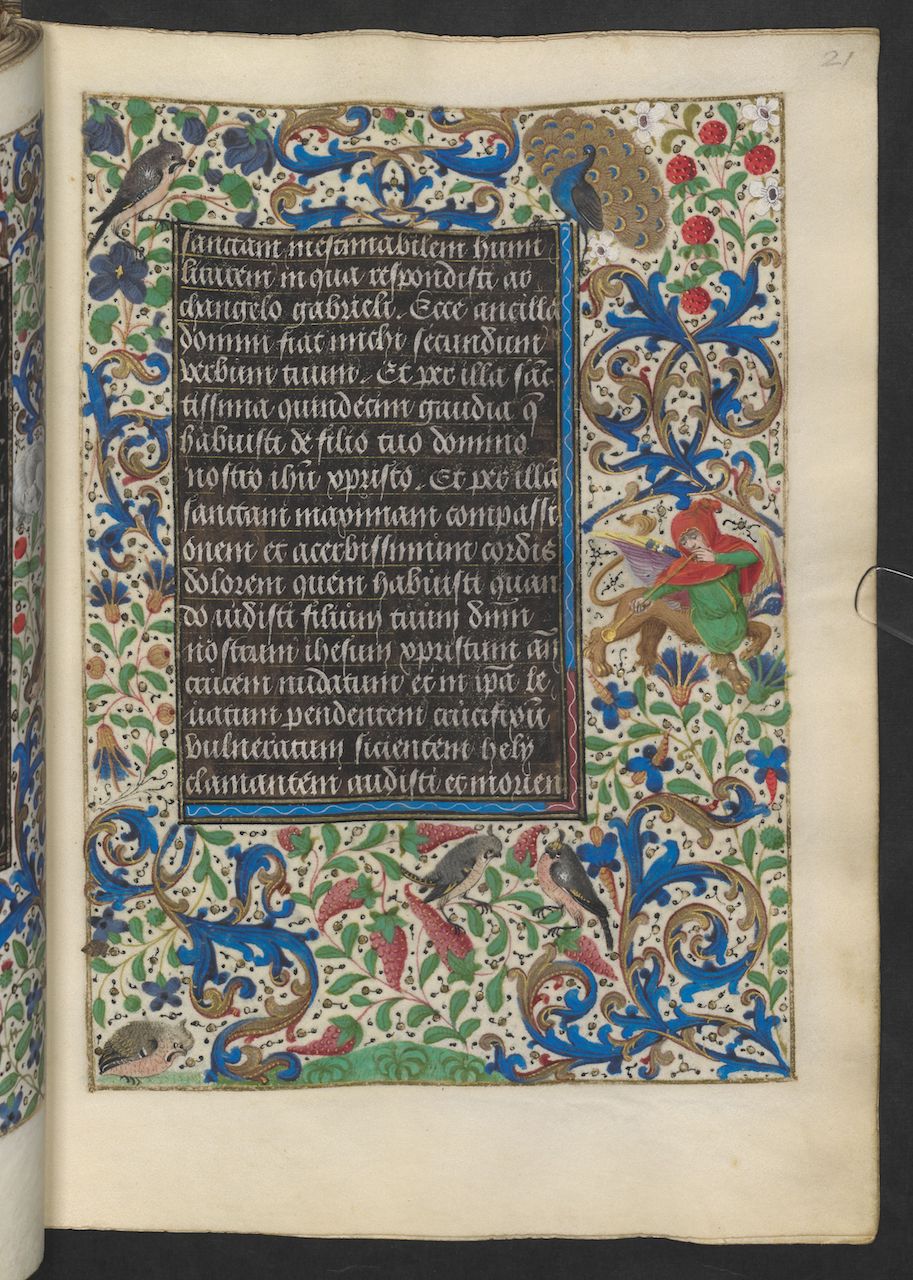 21
sanctam inestimabilem humi
litatem in qua respondisti ar
changelo gabrieli. Ecce ancilla
domini fiat michi secundum
verbum tuum. Et per illa sāc
tissima quindecim gaudia q̄
habuisti de filio tuo domino
nostro ihū xpristo. Et per illā
sanctam maximam compassi
onem et acerbissimum cordis
dolorem quem habuisti quan
do vidisti filium tuum dnm̄
nostrum ihesum xpristum an̄
crucem nudatum et in ipā le
vatum pendentem crucifixū
vulneratum sicientem hely
clamantem audisti et morien